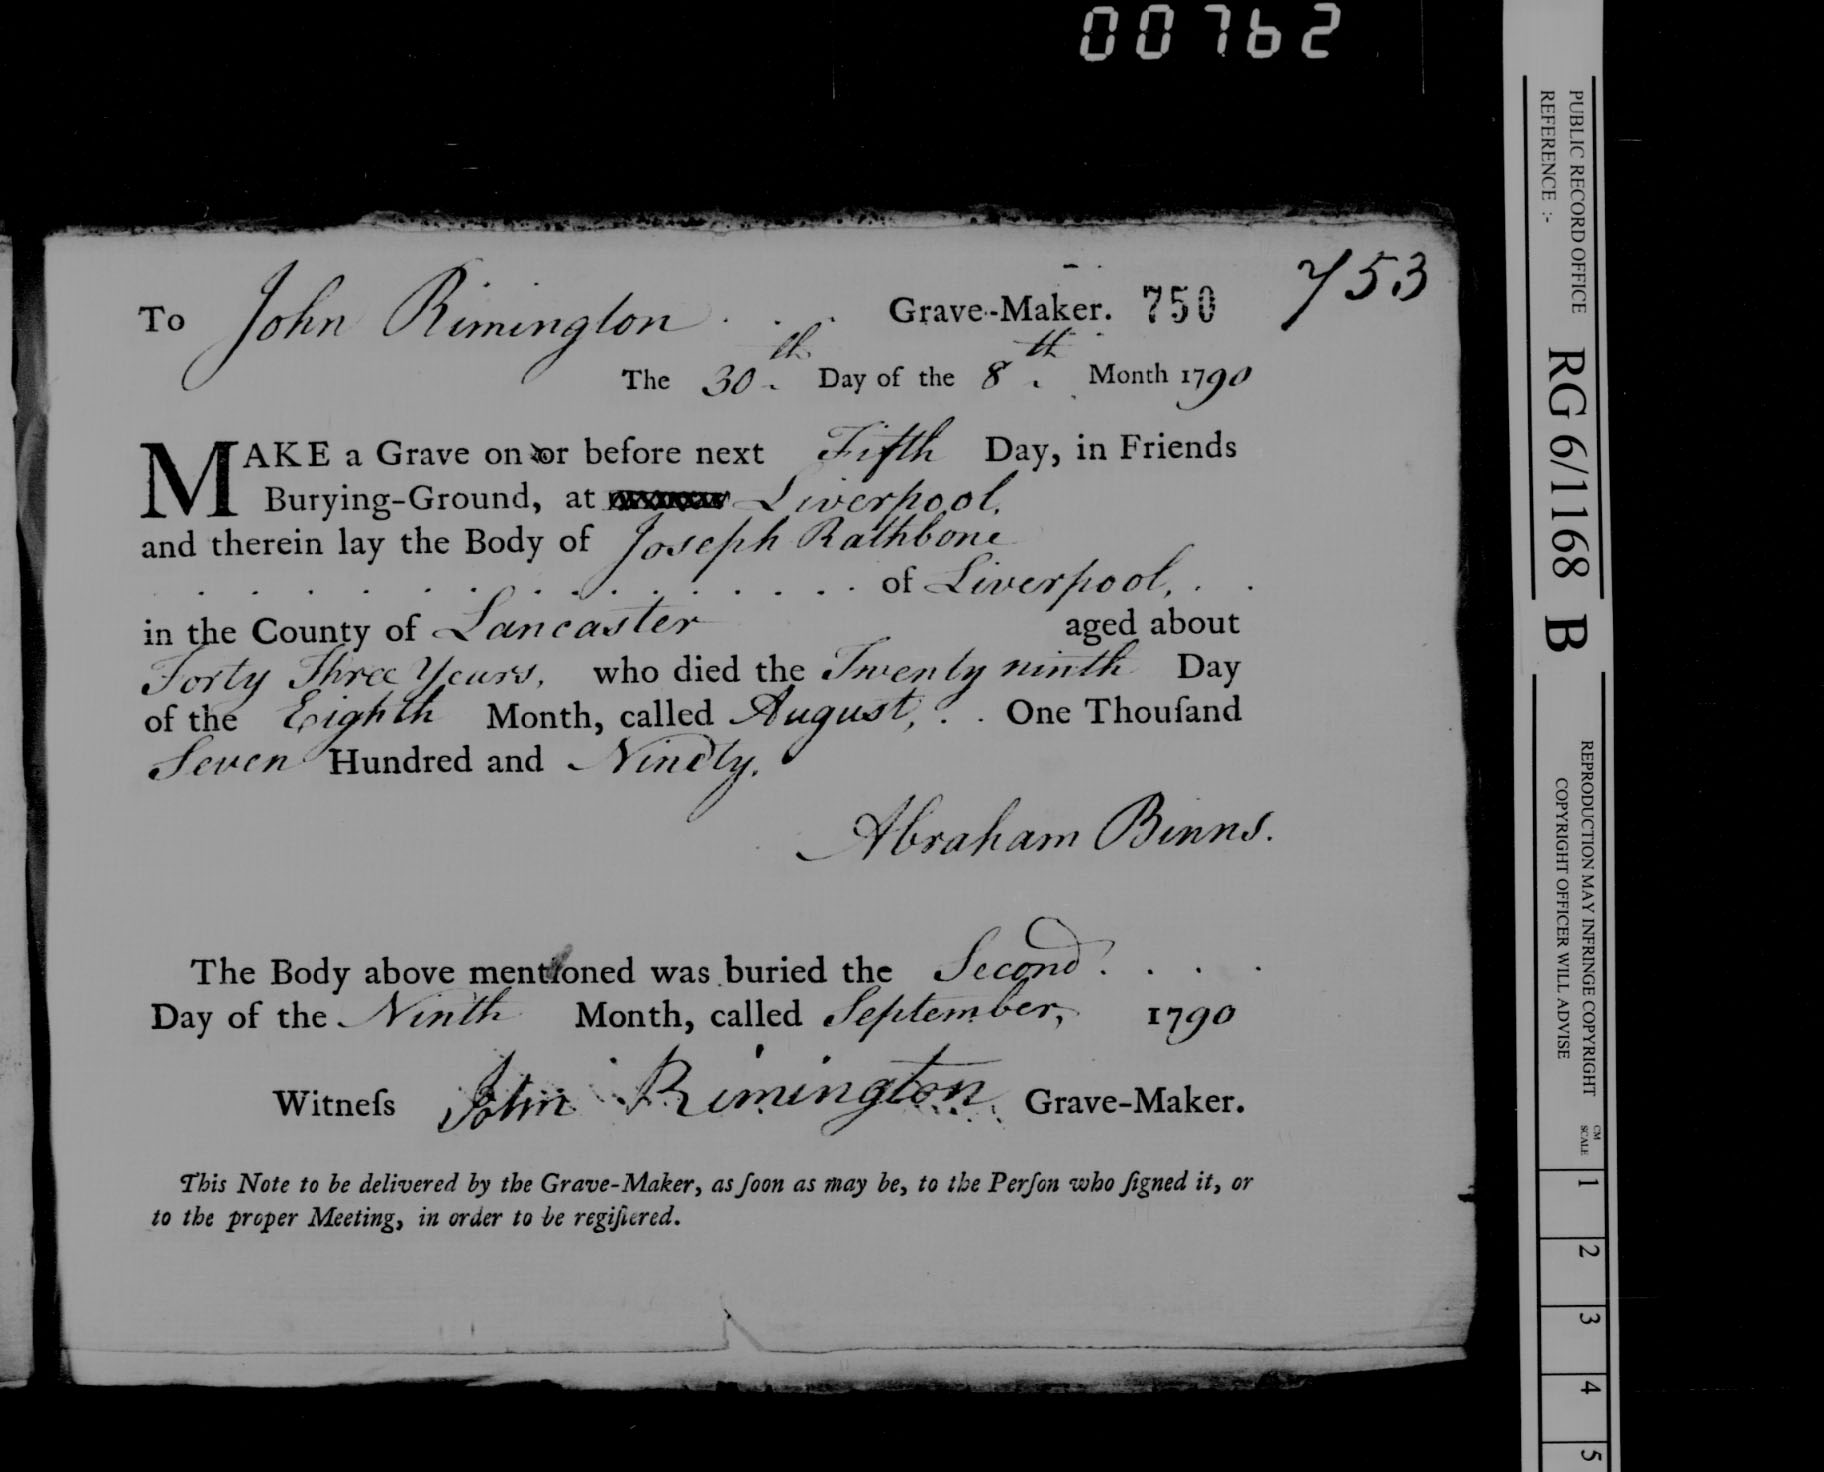 00762
To John Rimington . . . Grave-Maker. 750 753
The 30th Day of the 8th Month 1790
MAKE a Grave on or before next Fifth Day, in Friends
Burying-Ground, at Liverpool,
and therein lay the Body of Joseph Rathbone
. . . . . . . . . . . . . of Liverpool, . .
in the County of Lancaster aged about
Forty Three Years, who died the Twenty ninth Day
of the Eighth Month, called August, . . One Thouſand
Seven Hundred and Ninety.
Abraham Binns.
The Body above mentioned was buried the Second . . . .
Day of the Ninth Month, called September, 1790
Witneſs John Rimington Grave-Maker.
This Note to be delivered by the Grave-Maker, as ſoon as may be, to the Perſon who ſigned it, or
to the proper Meeting, in order to be regiſtered.
PUBLIC RECORD OFFICE
REFERENCE :-
RG 6/1168 B
REPRODUCTION MAY INFRINGE COPYRIGHT
COPYRIGHT OFFICER WILL ADVISE
CM
SCALE
1
2
3
4
5